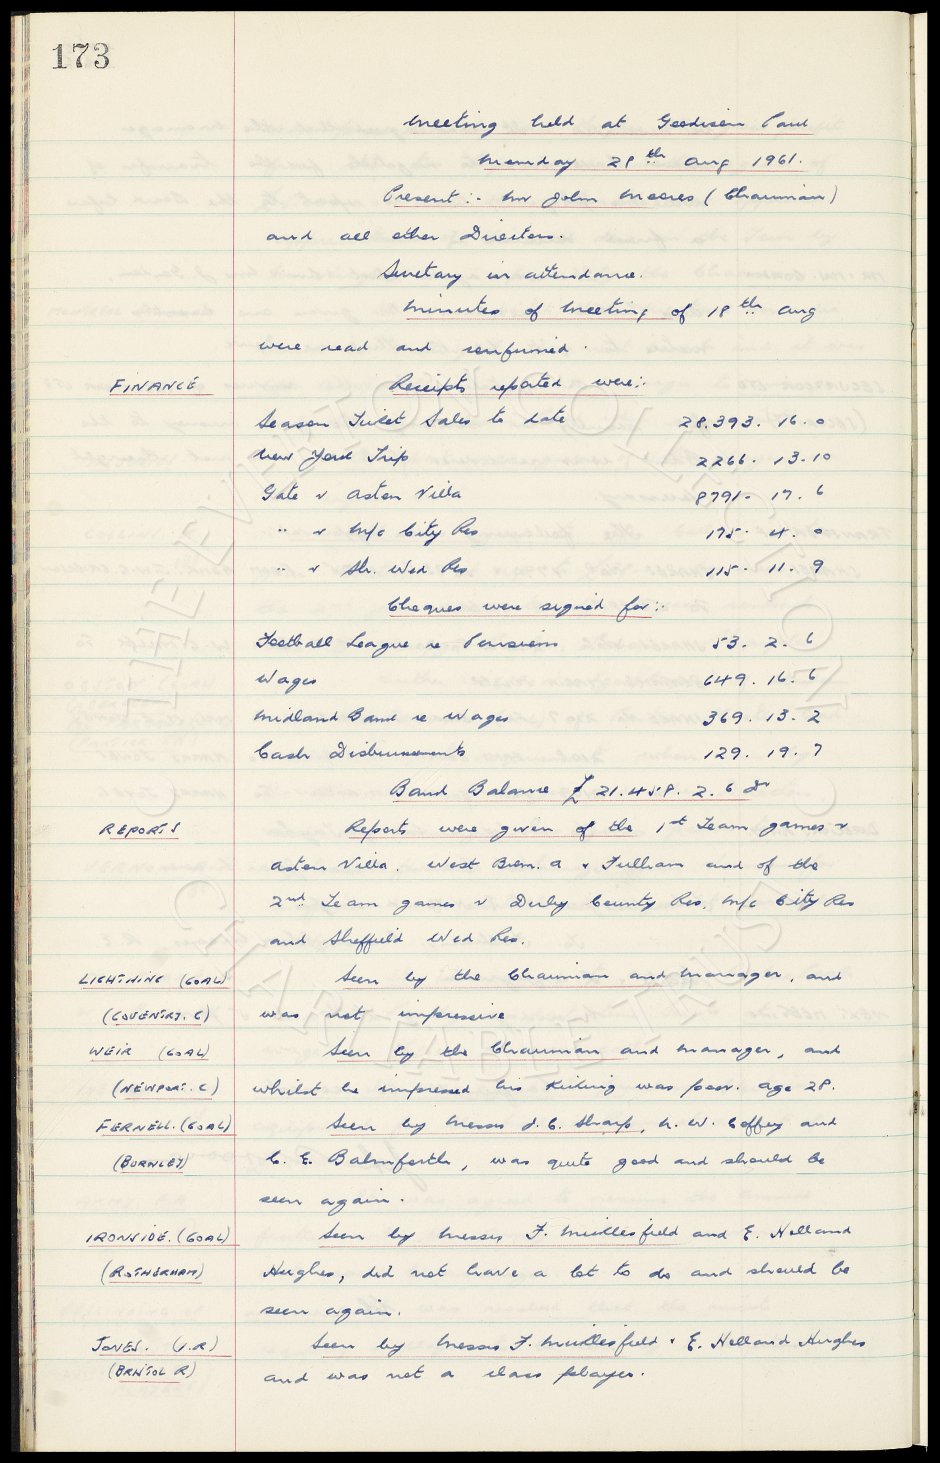 173
Meeting held at Goodison Park
Monday 28th Aug 1961.
Present:- Mr John Moores (Chairman)
and all other Directors.
Secretary in attendance.
Minutes of Meeting of 18th Aug
were read and confirmed.
FINANCE Receipts reported were:-
Season Ticket Sales to date 28.393. 16. 0
New York Trip 2266. 13. 10
Gate v Aston Villa 8791. 17. 6
" v M/c City Res 175. 4. 0
" v Sh. Wed Res 115. 11. 9
Cheques were signed for:-
Football League re Pensions 53. 2. 6
Wages 649. 16. 6
Midland Bank re Wages 369. 13. 2
Cash Disbursements 129. 19. 7
Bank Balance £21.458. 2. 6 Dr
REPORTS Reports were given of the 1st Team games v
Aston Villa. West Brom. A & Fulham and of the
2nd Team games v Derby County Res, M/c City Res
and Sheffield Wed Res.
LIGHTNING (GOAL) Seen by the Chairman and Manager, and
(COVENTRY. C) was not impressive
WEIR (GOAL) Seen by the Chairman and Manager, and
(NEWPORT. C) whilst he impressed his kicking was poor. age 28.
FERNELL. (GOAL) Seen by Messrs J. C. Sharp, N. W. Coffey and
(BURNLEY) C. E. Balmforth, was quite good and should be
seen again.
IRONSIDE. (GOAL) Seen by Messrs F. Micklesfield and E. Holland
(ROTHERHAM) Hughes, did not have a lot to do and should be
seen again.
JONES. (I.R) Seen by Messrs F. Micklesfield & E. Holland Hughes
(BRISTOL R) and was not a class player.
THE EVERTON COLLECTION
CHARITABLE TRUST